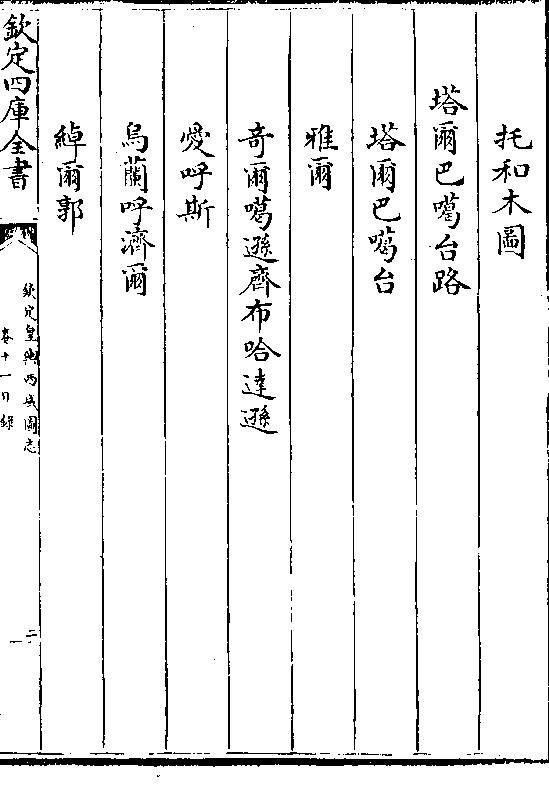 托和木圖
塔爾巴噶台路
塔爾巴噶台
雅爾
奇爾噶遜齊布哈達遜
愛呼斯
烏蘭呼濟爾
綽爾郭
欽定四庫全書
欽定皇輿西域圖志
卷十一目錄
二